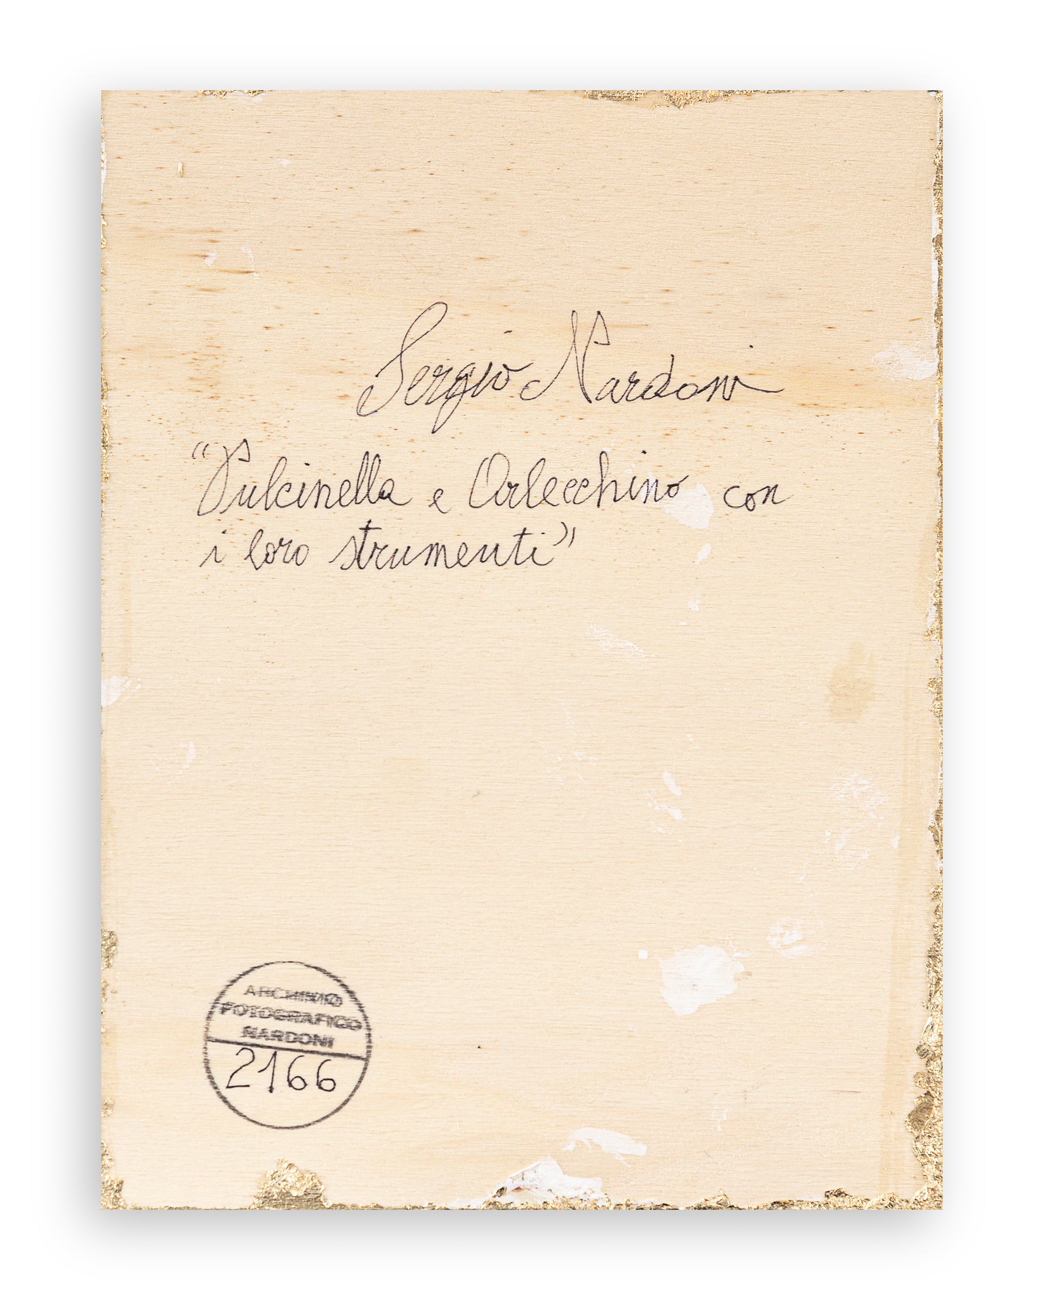 Sergio Nardoni
“Pulcinella e Arlecchino con
i loro strumenti”
ARCHIVIO
FOTOGRAFICO
NARDONI
2166